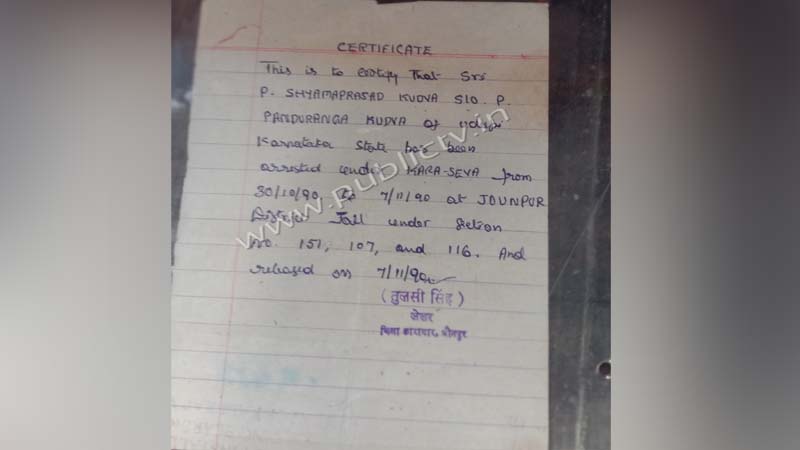 CERTIFICATE
This is to certify That Sri
P. SHYAMAPRASAD KUDVA S/O. P.
PANDURANGA KUDVA of
Karnataka State has been
arrested under KARA-SEVA from
30/10/90, to 7/11/90 at JOUNPUR
District Jail under Section
No. 151, 107, and 116. And
released on 7/11/90
(तुलसी सिंह)
जेलर
जिला कारागार, जौनपुर
www.publictv.in